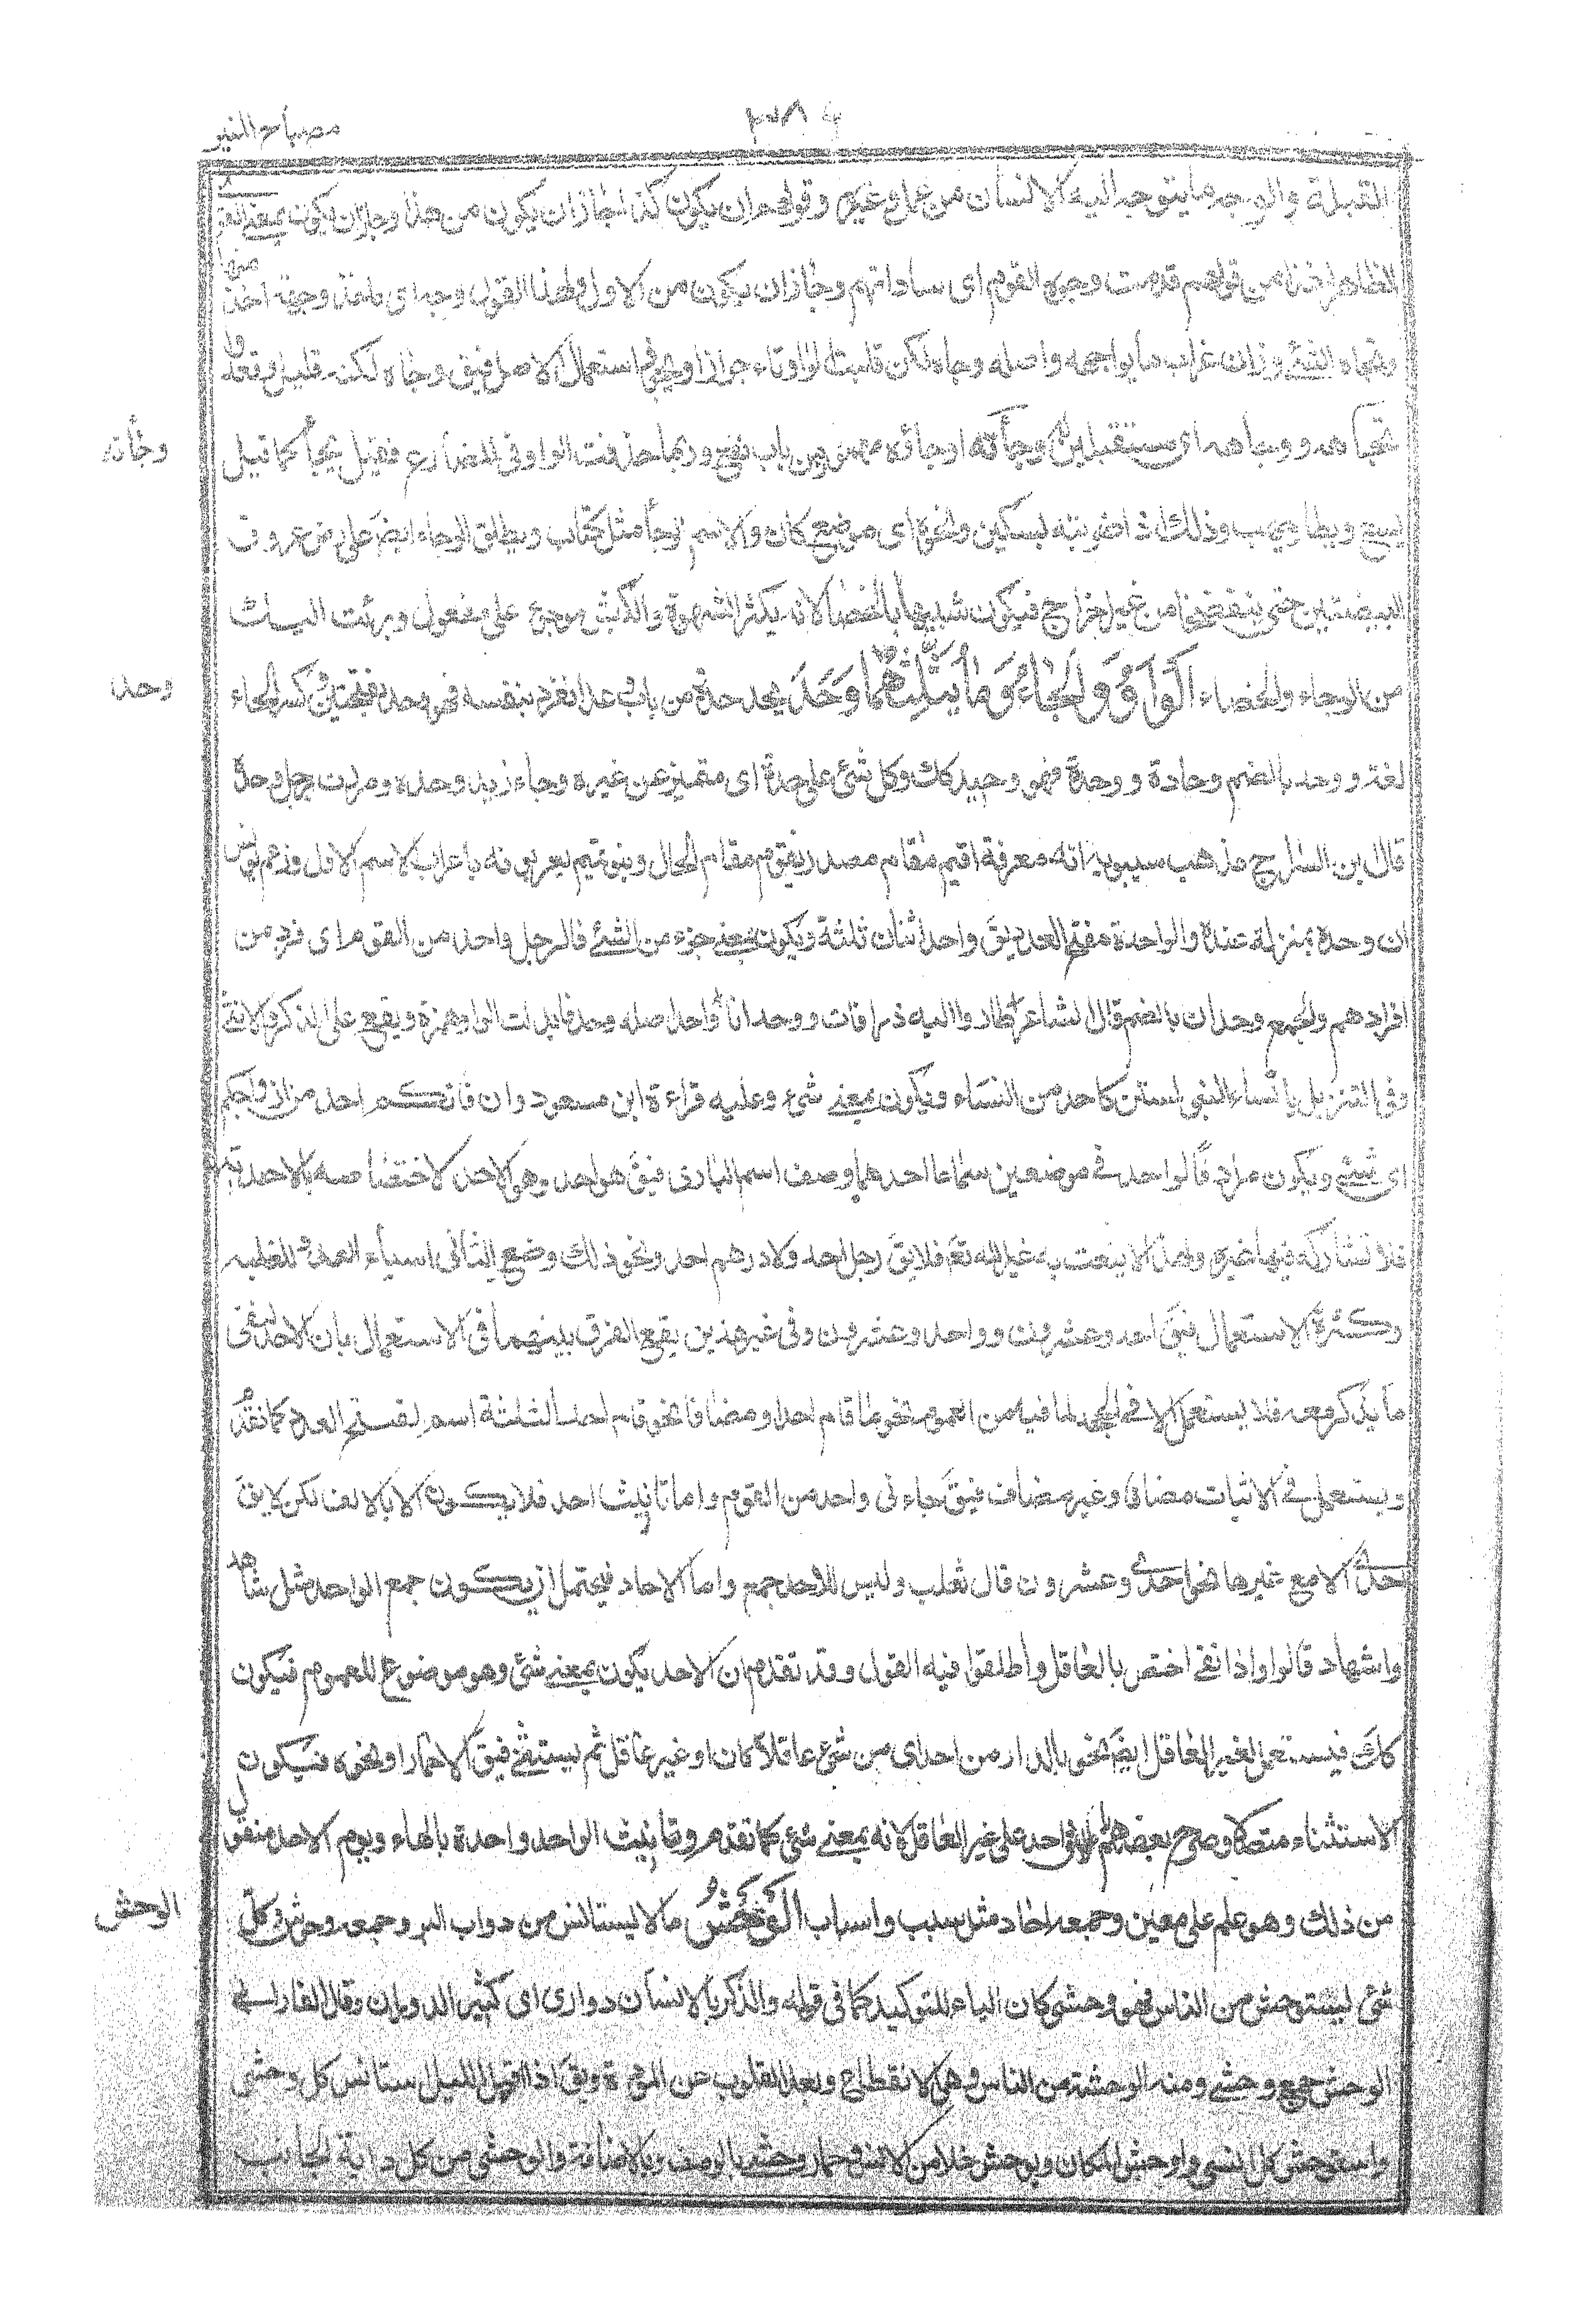 مصباح المنير
القبلة والوجه ما يتوجه اليه الانسان من عمل وغيره وقولهم ان يكون كذا جاز ان يكون من هذا وجاز ان يكون بمعنى القوى
الظاهر اخذا من قولهم قدمت وجوه القوم اى ساداتهم وجاز ان يكون من الاول ولهذا القول وجه اى ماخذ وجهة اخذ منها
وتجاه الشئ وزان غراب ما يواجهه واصله وجاه لكن قلبت الواو تاء جوازا ويجوز استعمال الاصل فيق وجاه لكنه قليل وقعدوا
تجاهه ووجاهه اى مستقبلين له وجأته اوجأه مهموز من باب نفع وربما حذفت الواو فى المضارع فقيل يجأ كما قيل
وجأته
يسع ويطأ ويهب وذلك اذا ضربته بسكين ونحوه اى موضع كان والاسم الوجأ مثل كتاب ويطلق الوجاء ايضا على رض عروق
البيضتين حتى ينفضخا من غير اخراج فيكون شبيها بالخصاء لانه يكثر الشهوة والكبش موجوء على مفعول وبرئت اليك
من الوجاء والخصاء الْوَاوُ وَالْحَاءُ وَمَا يُثَلِّثُهُمَا وَحَدَ يحد حدة من باب وعد انفرد بنفسه فهو وحد بفتحتين وكسر الحاء
وحد
لغة ووحد بالضم وحادة ووحدة فهو وحيد كك وكل شئ على حدة اى متميز عن غيره وجاء زيد وحده ومررت برجل وحده
قال بن السراج مذهب سيبويه انه معرفة اقيم مقام مصدر يقوم مقام الحال وبنو تميم يعربونه باعراب الاسم الاول وزعم يونس
ان وحده بمنزلة عنده والواحدة مفتتح العدد يق واحد اثنان ثلثة ويكون بمعنى جزء من الشئ فالرجل واحد من القوم اى فرد من
افرادهم والجمع وحدان بالضم قال الشاعر طاروا اليه زرافات ووحدانا واحد اصله وحد فابدلت الواو همزة ويقع على الذكر والانثى
وفى التنزيل يا نساء النبى لستن كاحد من النساء ويكون بمعنى شئ وعليه قراءة ابن مسعود وان فاتكم احد من ازواجكم
اى شئ ويكون مرادفا لواحد فى موضعين سماعا احدهما وصف اسم البارى فيق هو واحد وهو الاحد لاختصاصه بالاحدية
فلا تشاركه فيها غيره ولهذا لا ينعت به غير الله تع فلا يق رجل احد ولا درهم احد ونحو ذلك وضع الثانى اسماء العدد للغلبه
وكثرة الاستعمال فيق احد وعشرون وواحد وعشرون وفى غير هذين يقع الفرق بينهما فى الاستعمال بان الاحد لنفى
ما يذكر معه فلا يستعمل الا فى الجحد لما فيه من العموم نحو ما قام احد ومضافا نحو قام احد الثلثة اسم لمفتتح العدد كما تقدم
ويستعمل فى الاثبات مضافا وغير مضاف فيق جاءنى واحد من القوم واما تانيث احد فلا يكون الا بالالف لكن لا يق
احدى الا مع غيرها نحو احدى وعشرون قال ثعلب وليس للاحد جمع واما الاحاد فيحتمل ان يكون جمع الواحد مثل شاهد
واشهاد قالوا واذا نفى اختص بالعاقل واطلقوا فيه القول وقد تقدم ان الاحد يكون بمعنى شئ وهو موضوع للعموم فيكون
كك فيستعمل لغير العاقل ايضا نحو ما بالدار من احد اى من شئ عاقلا كان او غير عاقل ثم يستثنى فيق الا حمارا ونحوه فيكون
الاستثناء متصلا وصرح بعضهم باطلاق احد على غير العاقل لانه بمعنى شئ كما تقدم وتانيث الواحد واحدة بالهاء ويوم الاحد منقول
من ذلك وهو علم على معين وجمعه احاد مثل سبب واسباب الْوَحْشُ ما لا يستانس من دواب البر وجمعه وحوش وكل
الوحش
شئ يستوحش من الناس فهو وحشى كان الياء للتوكيد كما فى قوله والدهر بالانسان دوارى اى كثير الدوران وقال الفارابى
الوحش جمع وحشى ومنه الوحشة من الناس وهى الانقطاع وبعد القلوب عن المودة ويق اذا اقبل الليل استانس كل وحشى
واستوحش كل انسى واوحش المكان وتوحش خلا من الانس وحمار وحشى بالوصف وبالاضافة والوحشى من كل دابة الجانب